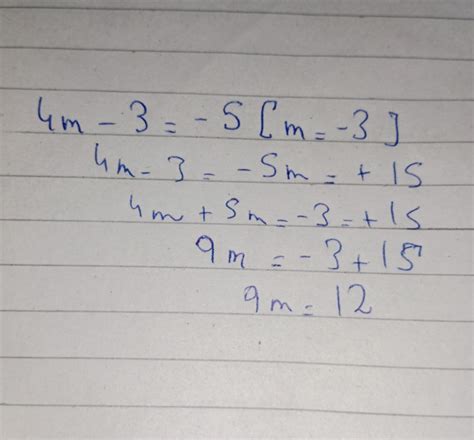 4m - 3 = - 5 [ m = -3 ]
4m - 3 = - 5m = + 15
4m + 5m = -3 = + 15
9m = - 3 + 15
9m = 12